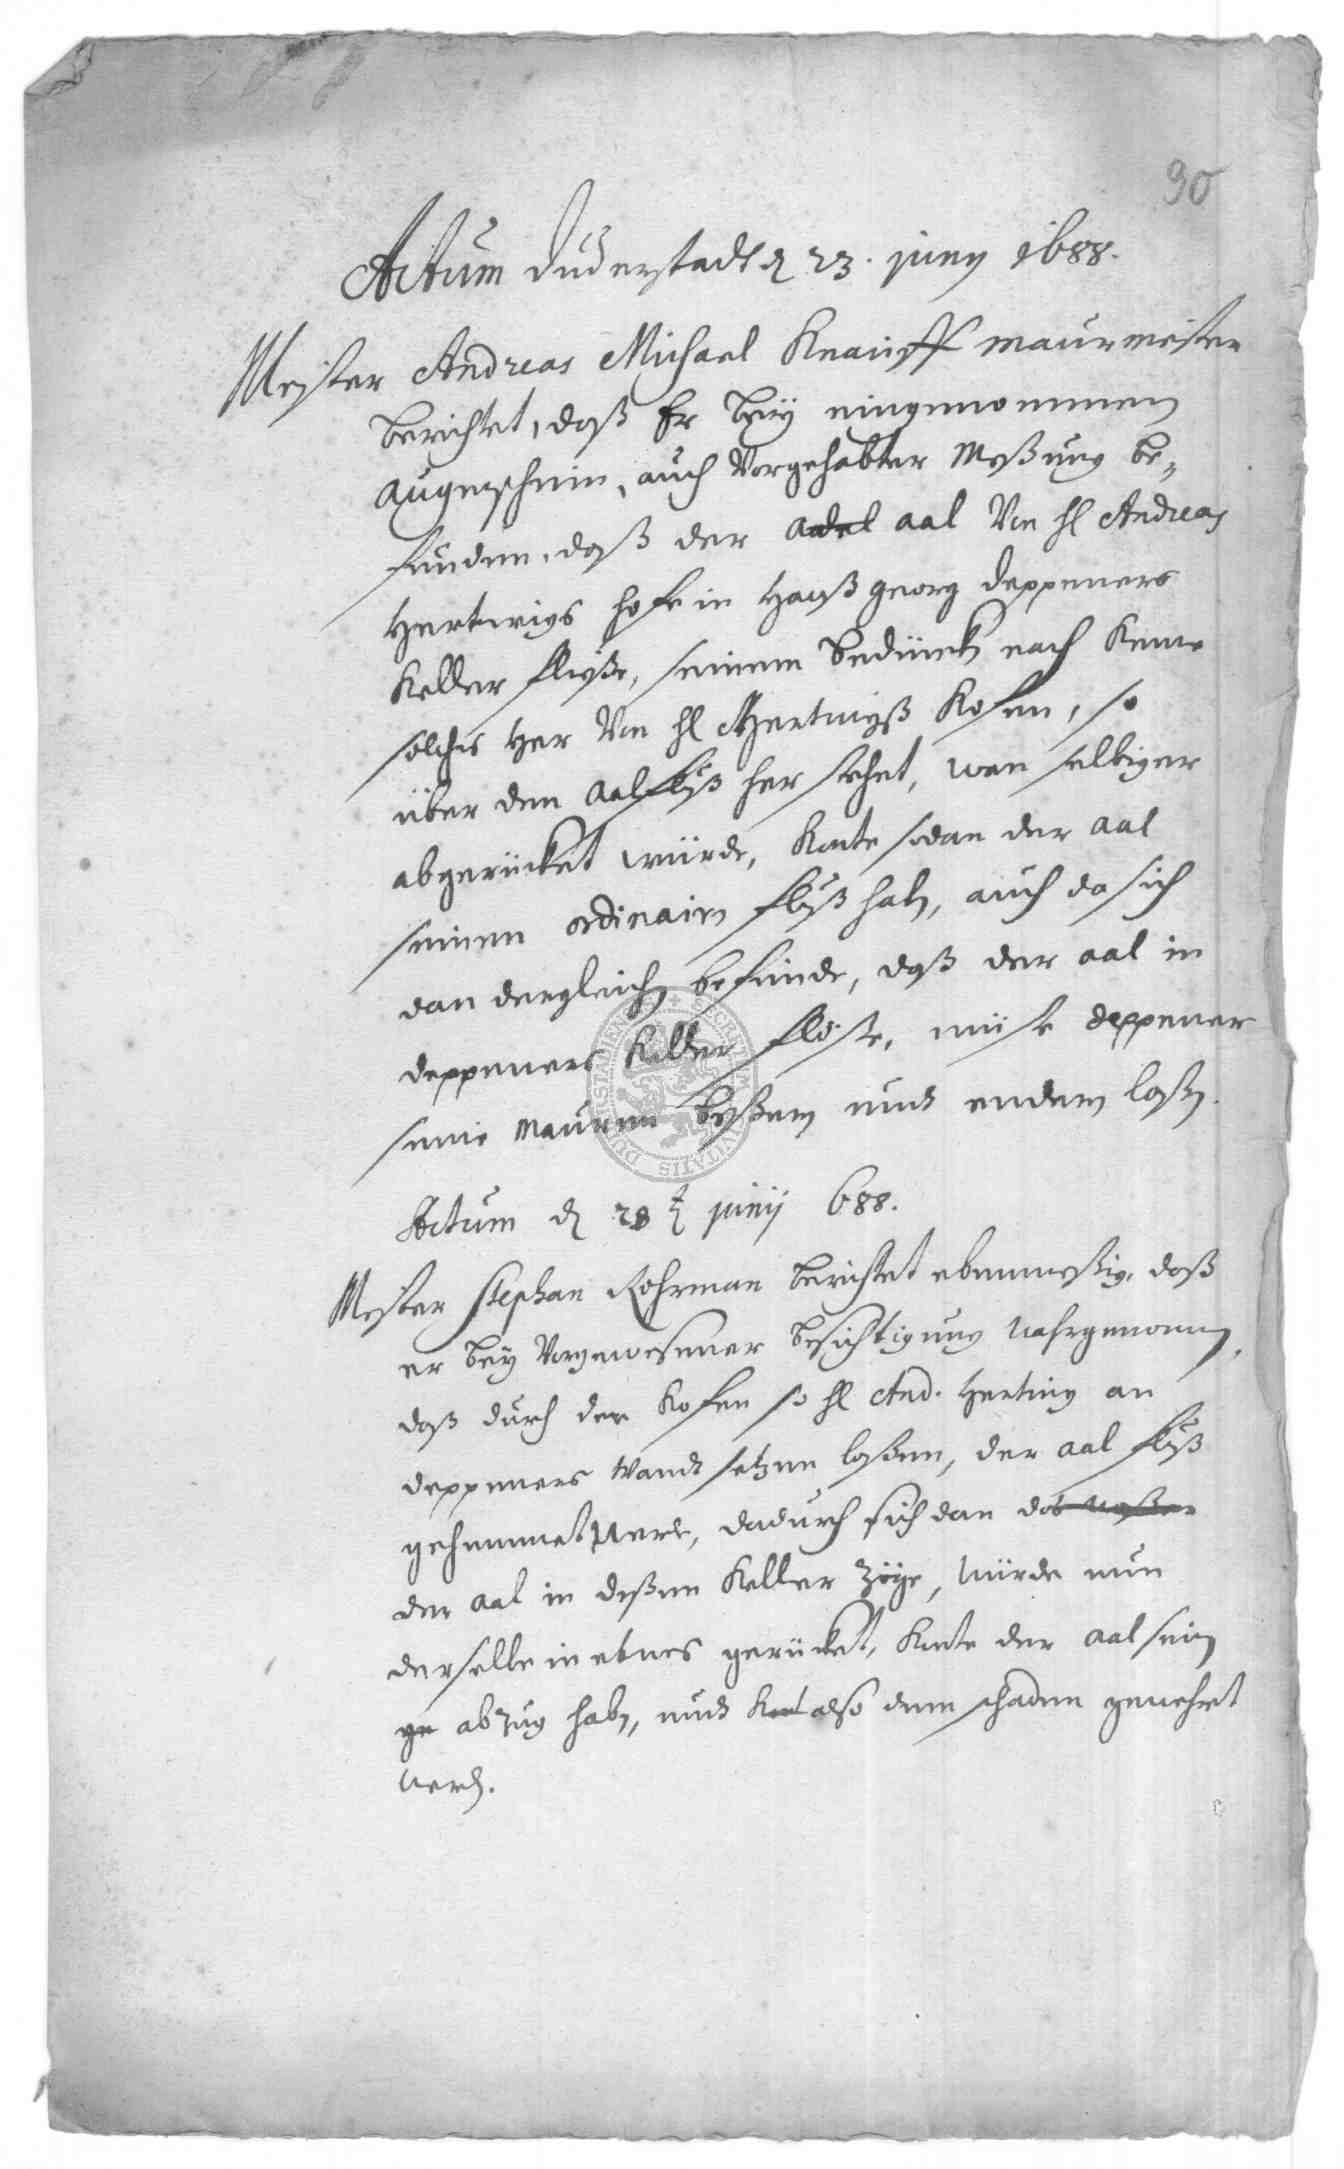 90
Actum Duderstadt d 23. juny 1688.
Meister Andreas Michael Knauff Maurmeister
berichtet, daß Er bey eingenommenen
augenschein, auch Vorgehabter Meßung be-
funden, daß der adel aal Von H Andreas
Hertwigs hofe in Hanß Georg Deppeners
Keller fließe, seinem bedüncken nach keme
solches her Von H Hertwigß Kofen, so
über den aalfluß her stehet, wan selbiger
abgerücket würde, konte sodan der aal
seinen ordinairen fluß haben, auch da sich
dan dergleichen befunde, daß der aal in
Deppeners Keller flöße, müste Deppener
seine Mauren beßern und endern laßen.
Actum d 28 t junij 688.
Meister Stephan Rohrman berichtet ebenmeßig, daß
er bey Vorgewesener besichtigung wahrgenommen,
daß durch den Kofen so H And. Hertwig an
Deppeners Wandt setzen laßen, der aal fluß
gehemmet werde, dadurch sich dan das waßer
der aal in deßen Keller zöge, würde nun
derselbe in etwas gerücket, konte der aal seinen
ge abzug haben, und kont also dem schaden gewehret
werden.
DUDERSTADIENSIS + SECRETUM CIVITATIS